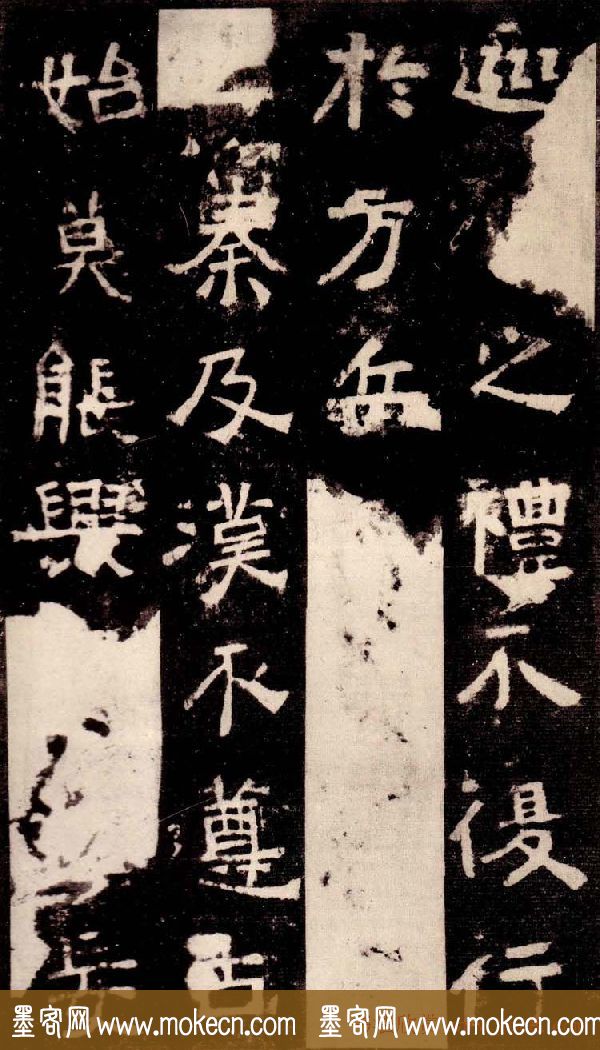 巡□之禮不復行
於方岳
秦及漢不尊古
始莫能興
岳
墨客网 www.mokecn.com 墨客网 www.mokecn.com